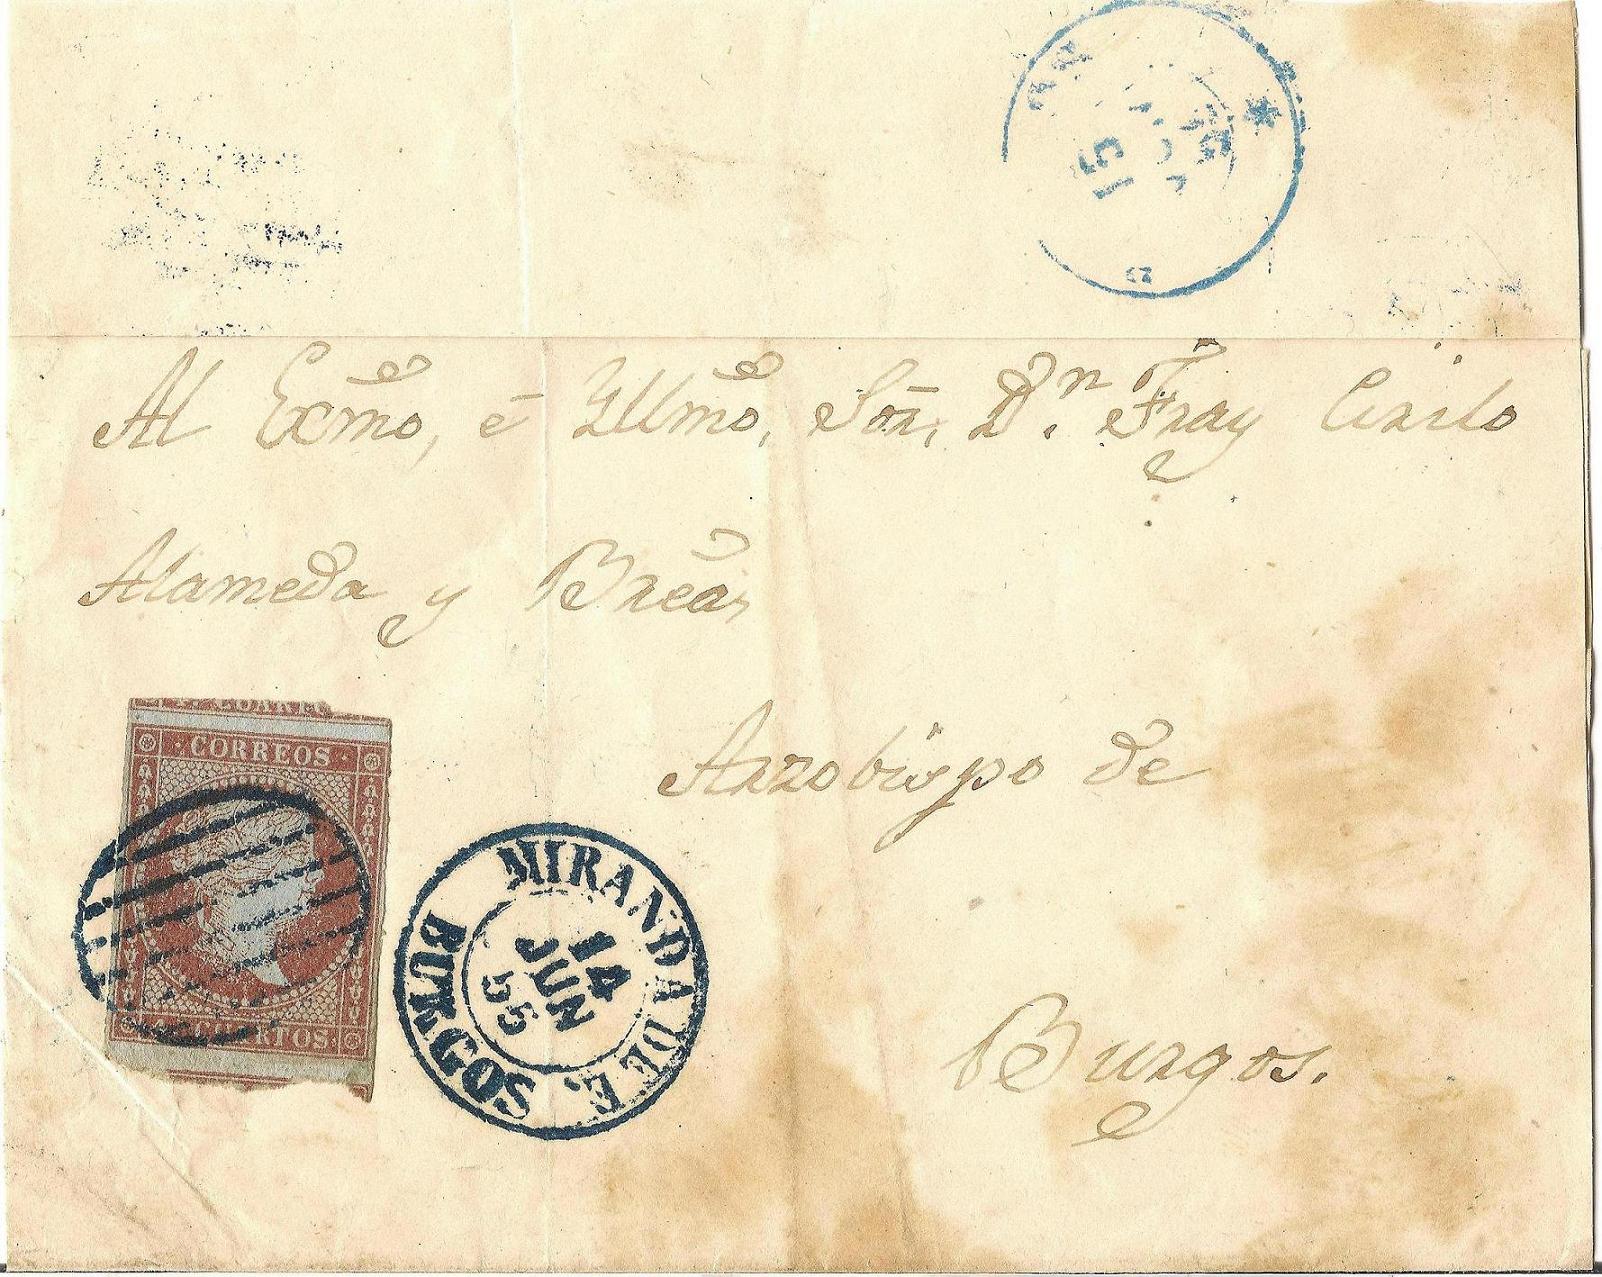 15
Al Exmo, é Yllmo, Sor, Dn. Fray Cirilo
Alameda y Brea,
Arzobispo de
Burgos.
CORREOS
CUARTOS
MIRANDA DE E.
BURGOS
14
JUN
55